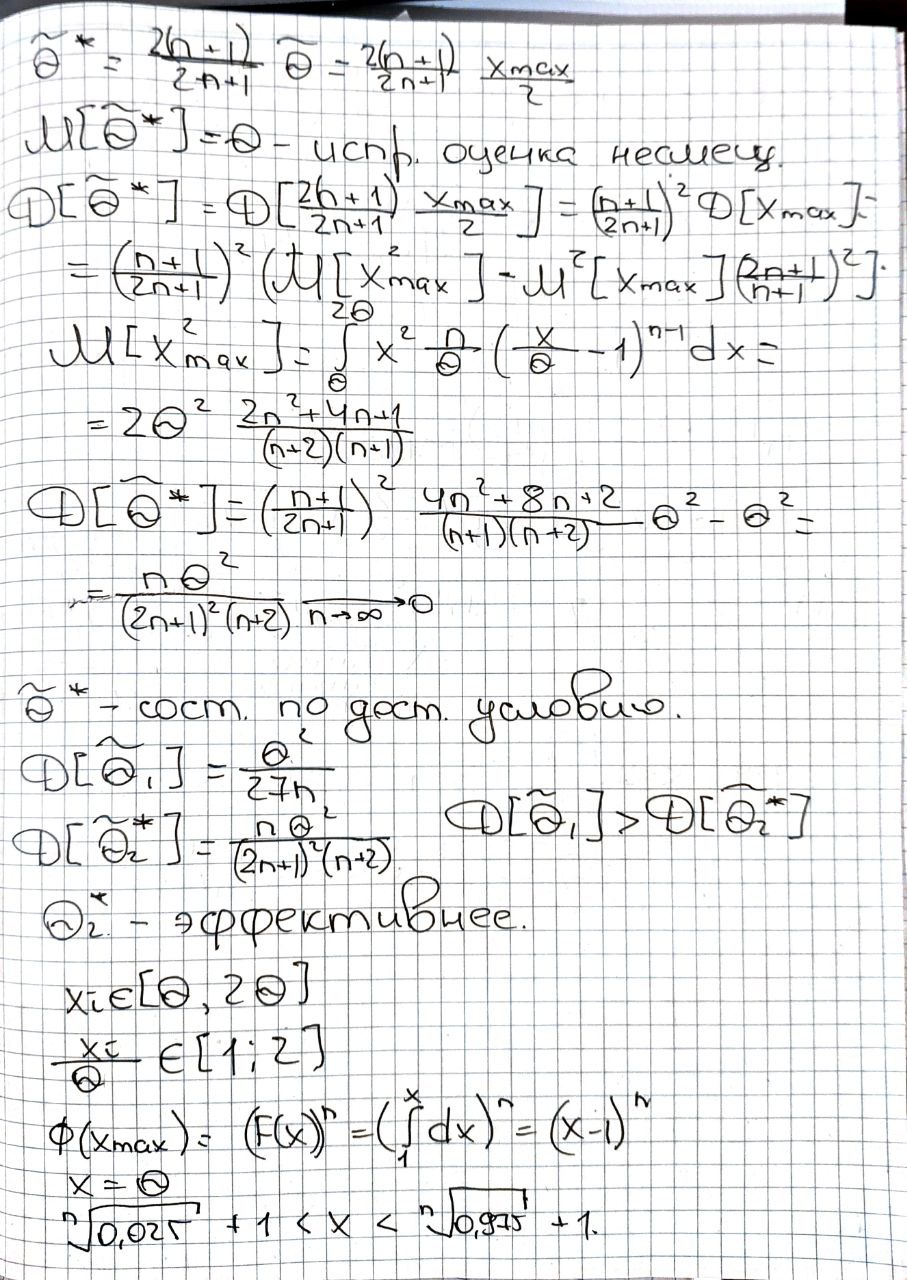 θ̃* = 2(n+1)/(2n+1) θ̃ = 2(n+1)/(2n+1) xmax/2
M[θ̃*] = θ - испр. оценка несмещ.
D[θ̃*] = D[2(n+1)/(2n+1) xmax/2] = ((n+1)/(2n+1))² D[xmax] =
= ((n+1)/(2n+1))² (M[x²max] - M²[xmax]((2n+1)/(n+1))²]
M[x²max] = ∫_θ^{2θ} x² n/θ (x/θ - 1)^{n-1} dx =
= 2θ² (2n²+4n+1)/((n+2)(n+1))
D[θ̃*] = ((n+1)/(2n+1))² (4n²+8n+2)/((n+1)(n+2)) θ² - θ² =
= nθ²/((2n+1)²(n+2)) →_{n→∞} 0
θ̃* - сост. по дост. условию.
D[θ̃₁] = θ²/27n
D[θ̃₂*] = nθ²/((2n+1)²(n+2)) D[θ̃₁] > D[θ̃₂*]
θ₂* - эффективнее.
xi ∈ [θ, 2θ]
xi/θ ∈ [1; 2]
ϕ(xmax) = (F(x))ⁿ = (∫_1^x dx)ⁿ = (x-1)ⁿ
x = θ
ⁿ√0,025 + 1 < x < ⁿ√0,975 + 1.